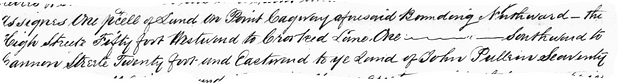 Assignes One pcell of Land on Point Cagway aforesaid Bounding Northward – the
High Streete Fifty foot Westward to Crooked Lane One ——— Southward to
Cannon Streete Twenty foot and Eastward to ye Land of John Pullen Seaventy